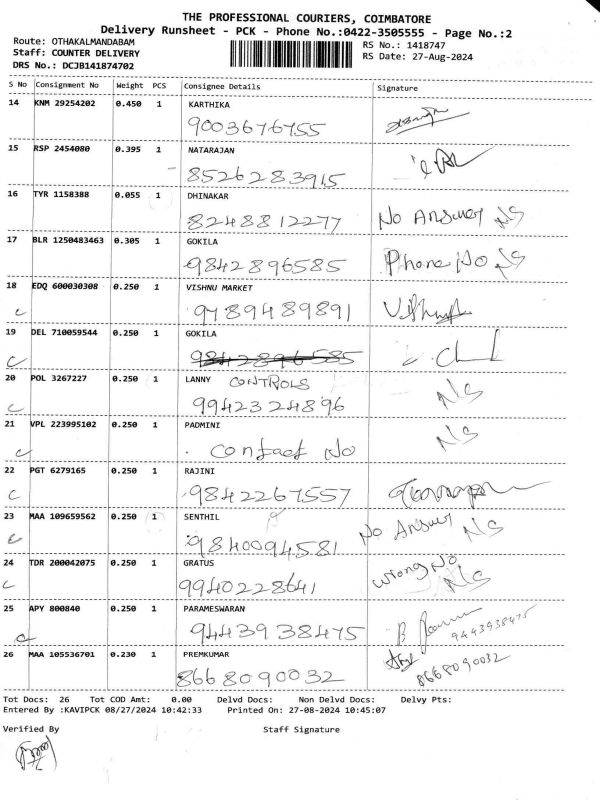 THE PROFESSIONAL COURIERS, COIMBATORE
Delivery Runsheet - PCK - Phone No.:0422-3505555 - Page No.:2
Route: OTHAKALMANDABAM RS No.: 1418747
Staff: COUNTER DELIVERY RS Date: 27-Aug-2024
DRS No.: DCJB141874702
S No Consignment No Weight PCS Consignee Details Signature
14 KNM 29254202 0.450 1 KARTHIKA
9003676755
15 RSP 2454080 0.395 1 NATARAJAN
8526283915
16 TYR 1158388 0.055 1 DHINAKAR
8248812277 No Answer NS
17 BLR 1250483463 0.305 1 GOKILA
9842896585 Phone No NS
18 EDQ 600030308 0.250 1 VISHNU MARKET
C 9789489891
19 DEL 710059544 0.250 1 GOKILA
C 9842896585
20 POL 3267227 0.250 1 LANNY CONTROLS
C 9942324896 NS
21 VPL 223995102 0.250 1 PADMINI
C Contact No NS
22 PGT 6279165 0.250 1 RAJINI
C 9842267557
23 MAA 109659562 0.250 1 SENTHIL
C 9840094581 No Answer NS
24 TDR 200042075 0.250 1 GRATUS
C 9940228641 wrong No NS
25 APY 800840 0.250 1 PARAMESWARAN
C 9443938475 9443938475
26 MAA 105536701 0.230 1 PREMKUMAR
8668090032 8668090032
Tot Docs: 26 Tot COD Amt: 0.00 Delvd Docs: Non Delvd Docs: Delvy Pts:
Entered By :KAVIPCK 08/27/2024 10:42:33 Printed On: 27-08-2024 10:45:07
Verified By Staff Signature